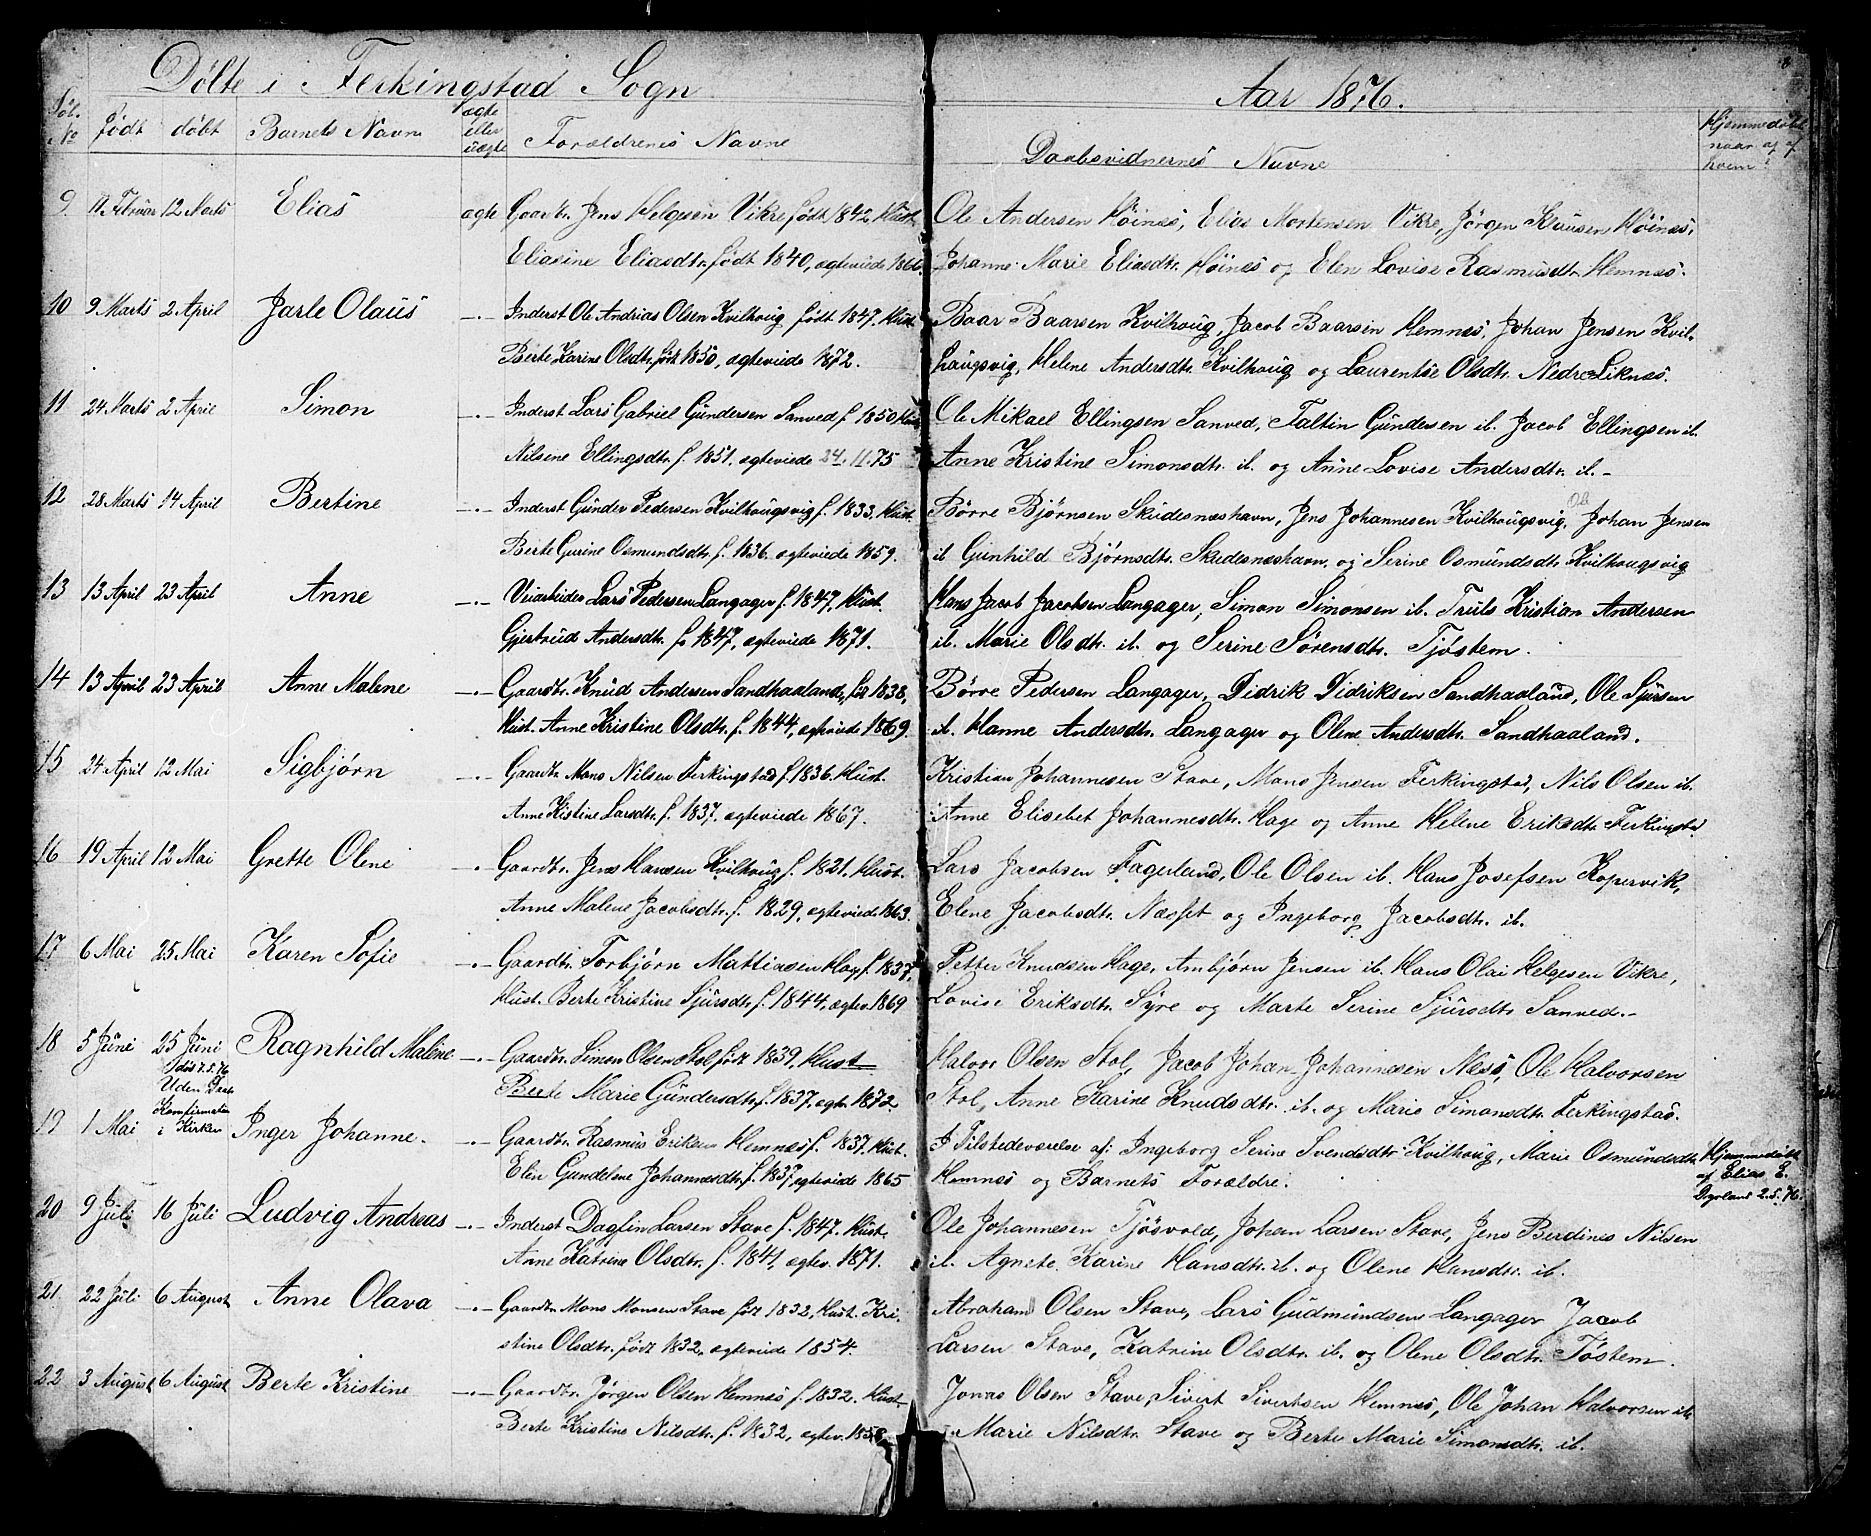 Døbte i Ferkingstad Sogn Aar 1876.
Løb. No født døbt Barnets Navn ægte eller uægte Forældrenes Navne Daabsvidnernes Navne Hjemmedøbt naar og af hvem?
9. 11 Februar 12 Marts Elias ægte Gaardbr. Jens Helgesen Vikre født 1842, Hust. Ole Andersen Høines, Elias Mortensen Vikre, Jörgen Klausen Høines,
Eliasine Eliasdtr. født 1840, ægteviede 1866. Johanne Marie Eliasdtr. Høines og Elen Lovise Rasmusdtr. Hemnes.
10 9 Marts 2 April Jarle Olaus -.- Inderst Ole Andrias Olsen Kvilhoug født 1847. Hust. Baar Baarsen Kvilhoug, Jacob Baarsen Hemnes, Johan Jensen Kvil-
Berte Karine Olsdtr. født 1850, ægteviede 1872. haugsvig, Helene Andersdtr. Kvilhoug og Laurentse Olsdtr. Nedre Liknes.
11 24 Marts 2 April Simon -.- Inderst Lars Gabriel Gundersen Sanved f. 1850 Hust. Ole Mikael Ellingsen Sanved, Faltin Gundersen ib. Jacob Ellingsen ib.
Nilsene Ellingsdtr. f. 1851. ægteviede 24.11.75 Anne Kristine Simonsdtr. ib. og Anne Lovise Andersdtr. ib.-
12 28 Marts 14 April Bertine -.- Inderst Gunder Pedersen Kvilhougsvig f. 1833. Hust. Børre Bjørnsen Skudesneshavn, Jens Johannesen Kvilhougsvig, Johan Jensen
Berte Gurine Osmundsdtr. f. 1836. ægteviede 1859. ib Gunhild Bjørnsdtr. Skudesneshavn, og Serine Osmundsdtr. Kvilhougsvig
13 13 April 23 April Anne -.- Veiarbeider Lars Pedersen Langager f. 1847. Hust. Hans Jacob Jacobsen Langager, Simon Simonsen ib. Truls Kristian Andersen
Gjertrud Andersdtr. f. 1847, ægteviede 1871. ib. Marie Olsdtr. ib. og Serine Sørensdtr. Tjøstem.
14 13 April 23 April Anne Malene -.- Gaardbr. Knud Andersen Sandhaaland, født 1838, Børre Pedersen Langager, Didrik Didriksen Sandhaaland, Ole Sjursen
Hust. Anne Kristine Olsdtr. f. 1844, ægteviede 1869. ib. Hanne Andersdtr. Langager og Olene Andersdtr. Sandhaaland.
15 24 April 12 Mai Sigbjørn -.- Gaardbr. Mons Nilsen Ferkingstad f. 1836. Hust. Kristian Johannesen Stave, Mons Jensen Ferkingstad, Nils Olsen ib.
Anne Kistine Larsdtr. f. 1837. ægteviede 1867. Anne Elisebet Johannesdtr. Hage og Anne Helene Eriksdtr. Ferkingstad
16 19 April 12 Mai Grette Olene -.- Gaardbr. Jens Hansen Kvilhoug f. 1821. Hust. Lars Jacobsen Fagerland, Ole Olsen ib. Hans Josefsen Kopervik,
Anne Malene Jacobsdtr. f. 1829, ægteviede 1863. Elene Jacobsdtr. Næsset og Ingeborg Jacobsdtr. ib.
17 6 Mai 25 Mai Karen Sofie -.- Gaardbr. Torbjørn Mattiasen Hage f. 1837, Petter Knudsen Hage, Ambjørn Jensen ib. Hans Olai Helgesen Vikre,
Hust. Berte Kristine Sjursdtr. f. 1844, ægtev. 1869 Lovise Eriksdtr. Syre og Marte Serine Sjursdtr. Sanved.-
18 5 Juni 25 Juni Ragnhild Malene -.- Gaardbr. Simon Olsen Stol født 1839, Hust Halvor Olsen Stol, Jacob Johan Johannesen Ness, Ole Halvorsen
Berte Marie Gundersdtr. f. 1837. ægtv. 1872. Stol, Anne Karine Knudsdtr. ib. og Marie Simonsdtr. Ferkingstad.
død 7.5.76
Uden Daabs
Konfirmation
19 1 Mai i Kirken Inger Johanne. -.- Gaardbr. Rasmus Eriksen Hemnes f. 1837. Hust. I Tilstedeværelse af: Ingeborg Serine Svendsdtr. Kvilhoug, Marie Osmundsdtr. Hjemmedøbt
Elen Gundelene Johannesdtr. f. 1837, ægteviede 1865 Hemnes og Barnets Forældre. af Elias E.
Dyrland 2.5.76.
20 9 Juli 16 Juli Ludvig Andreas -.- Inderst Dagfin Larsen Stave f. 1847. Hust. Ole Johannesen Tjøsvold, Johan Larsen Stave, Jens Berdines Nilsen
Anne Katrine Olsdtr. f. 1841, ægtev. 1871. ib. Agnete Karine Hansdtr. ib. og Olene Hansdtr. ib.
21 22 Juli 6 August Anne Olava -.- Gaardbr. Mons Monsen Stave født 1832, Hust. Kri- Abraham Olsen Stave, Lars Gudmundsen Langager Jacob
stine Olsdtr. født 1832, ægteviede 1854. Larsen Stave, Katrine Olsdtr. ib. og Olene Olsdtr. Tøstem.
22 3 August 6 August Berte Kristine -.- Gaardbr. Jørgen Olsen Hemnes f. 1832. Hust. Jonas Olsen Stave, Sivert Sivertsen Hemnes, Ole Johan Halvorsen ib.
Berte Kristine Nilsdtr. f. 1832, ægtev. 1858 Marie Nilsdtr. Stave og Berte Marie Simonsdtr. ib.